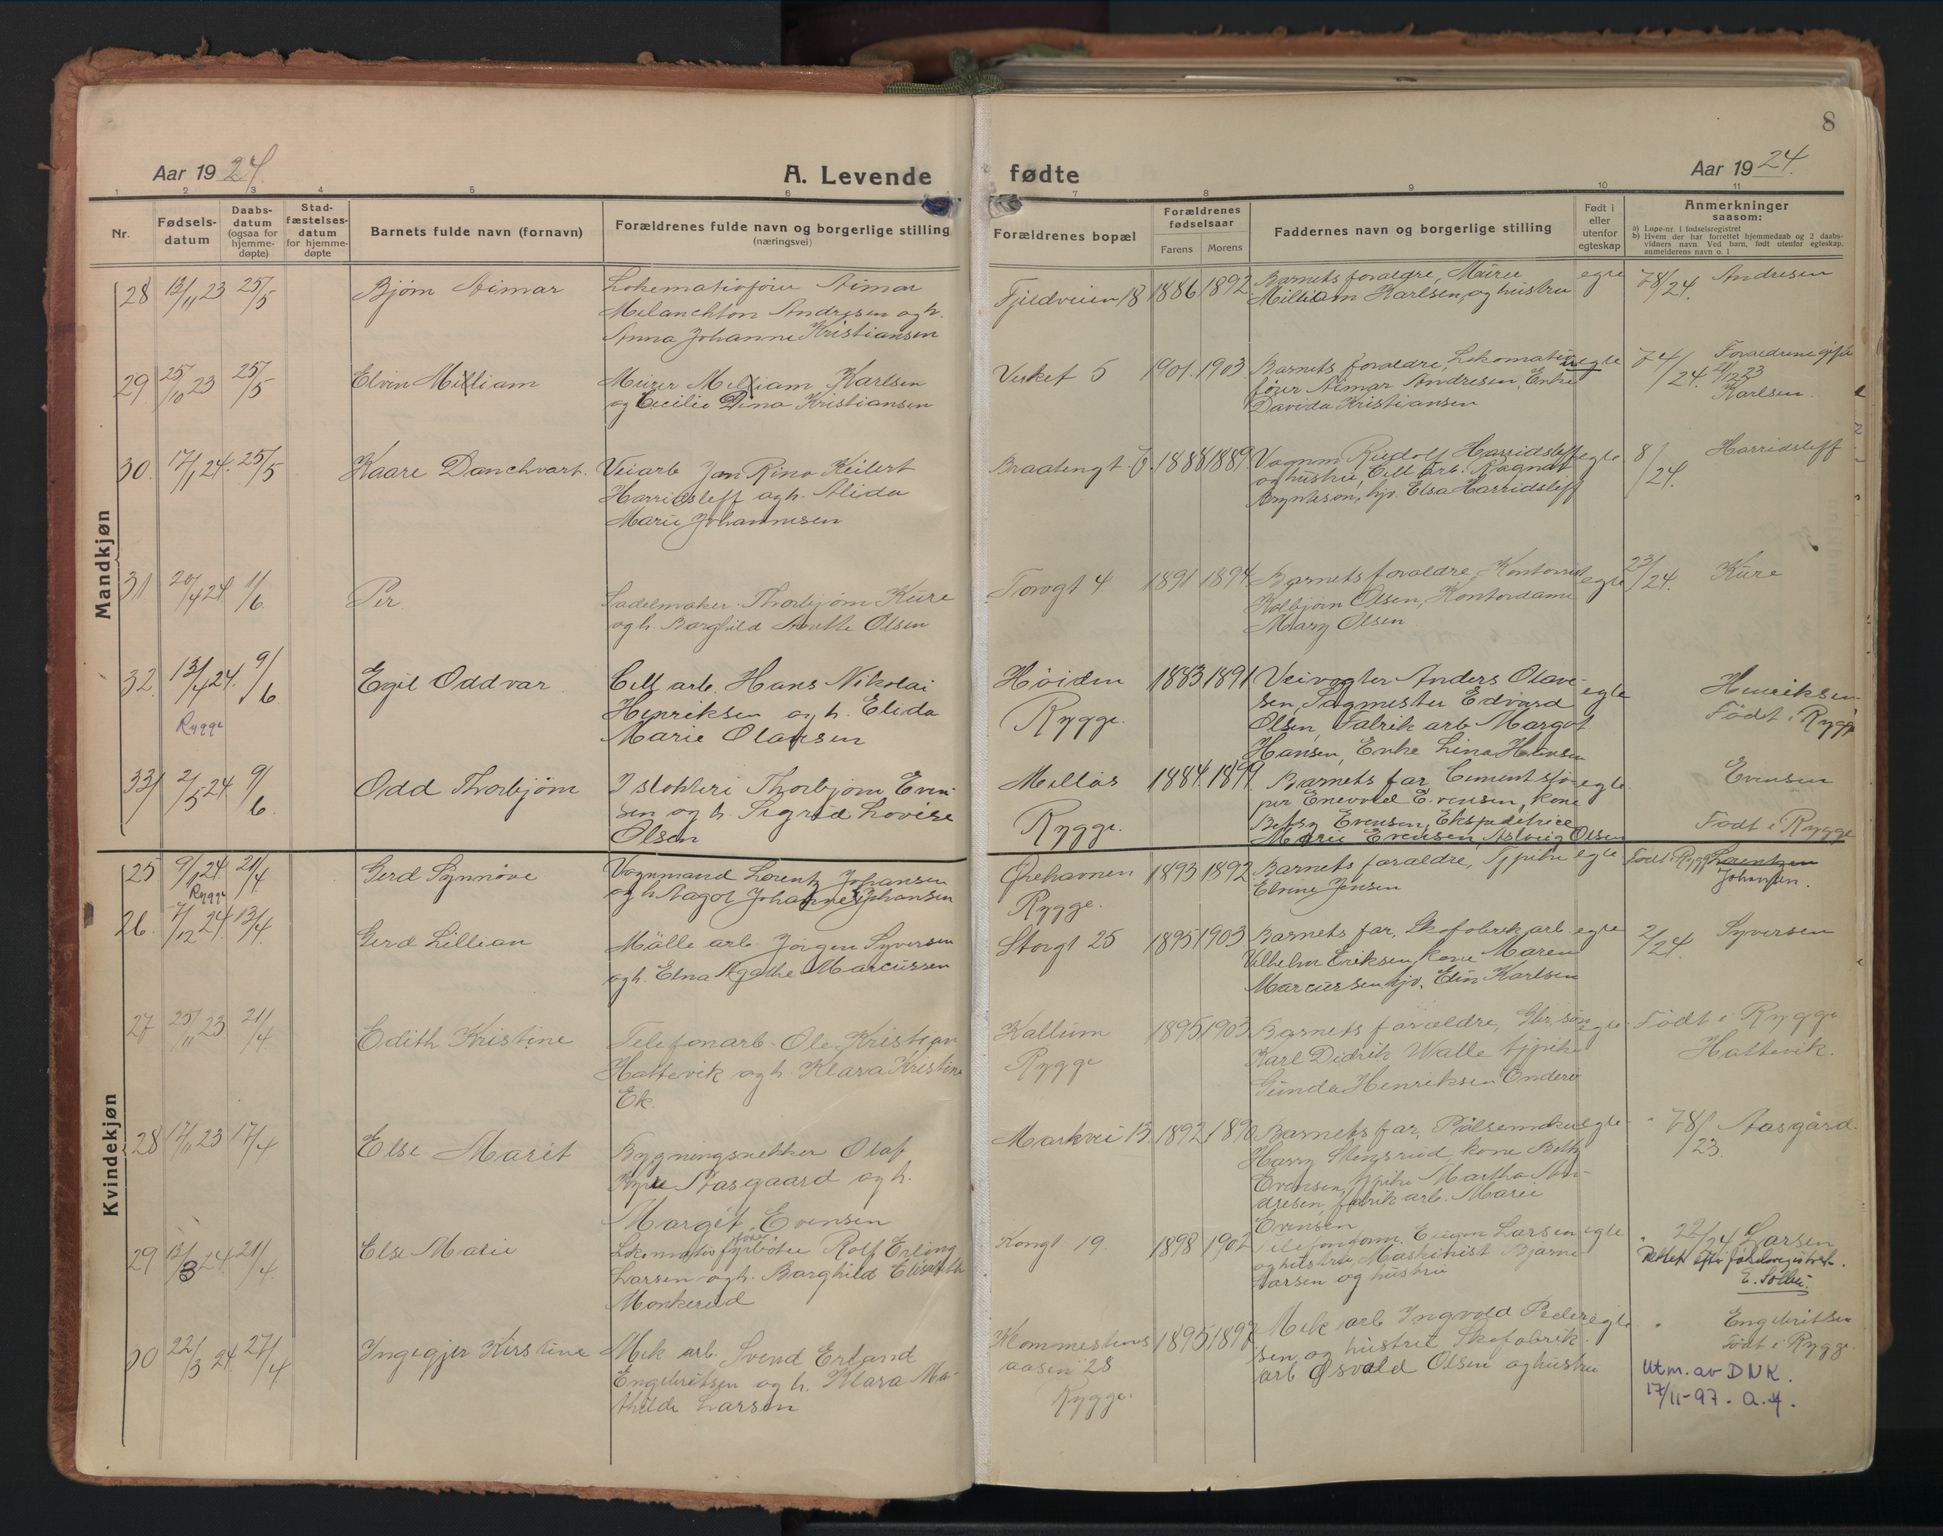 8
Aar 1924.
A. Levende fødte
Aar 1924.
1 2 3 4 5 6 7 8 9 10 11
Nr.
Fødsels-
datum
Daabs-
datum
(ogsaa for
hjemme-
døpte)
Stad-
fæstelses-
datum
for hjemme-
døpte
Barnets fulde navn (fornavn)
Forældrenes fulde navn og borgerlige stilling
(næringsvei)
Forældrenes bopæl
Forældrenes
fødselsaar
Farens Morens
Faddernes navn og borgerlige stilling
Født i
eller
utenfor
egteskap
Anmerkninger
saasom:
a) Løpe-nr. i fødselsregistret
b) Hvem der har forrettet hjemmedaab og 2 daabs-
vidners navn. Ved barn, født utenfor egteskap,
anmelderens navn o. l.
Mandkjøn
28 13/11 23 25/5
Bjørn Aimar
Lokomotivfører Aimar
Melanchton Andresen og h.
Anna Johanne Kristiansen
Fjeldveien 18
1886 1892
Barnets foraldre, Murer
William Karlsen, og hustru
egte
78/24.
Andresen
29 25/10 23 25/5
Elvin William
Murer William Karlsen
og Cecilie Dina Kristiansen
Verket 5
1901. 1903.
Barnets foraldre, Lokomotiv
fører Aimar Andresen, Enke
Davida Kristiansen
egte
74/24.
Foraldrene gift
21/12 23
Karlsen.
30. 17/1 24. 25/5
Kaare Danchvart.
Veiarb Jan Rino Keilert
Harridsleff og h. Alida
Marie Johannesen
Braatengt
1888 1889
Vognm Rudolf Harridsleff
og hustru, Cell arb. Ragnar
Brynteson, hjv. Elsa Harridsleff
egte
8/24.
Harridsleff
31 20/4 24 1/6
Per.
Sadelmaker Thorbjørn Kure
og h. Borghild Anette Olsen
Torvgt 4
1891 1894
Barnets foraldre, Kontorist
Kolbjørn Olsen, Kontordame
Mary Olsen.
egte
23/24.
Kure
32. 13/4 24. 9/6
Rygge
Egil Oddvar
Cell arb. Hans Nikolai
Henriksen og h. Elida
Marie Olausen
Høiden
Rygge.
1883 1891
Veivogter Anders Olav-
sen, Sagmester Edvard
Olsen, Fabrik arb Margot
Hansen, Enke Lina Hansen
egte
Henriksen
Født i Rygge
33 2/5 24 9/6
Odd Thorbjørn
Isloktéri Thorbjørn Even-
sen og h. Sigrid Lovise
Olsen
Melløs
Rygge.
1884. 1899.
Barnets far Cementstø-
per Enevold Evensen, kone
Betsy Evensen, Ekspeditrice
Marie Evensen, Aslaug Olsen
egte
Evensen
Født i Rygge
Kvindekjøn
25 9/1 24 21/4
Rygge
Gerd Synnøve
Vognmand Lorentz Johansen
og h. Aagot Johanne Johansen
Ørehavnen
Rygge.
1893 1892
Barnets foraldre, Tjpike
Elvine Jensen
egte
Født i Rygge Lorentzen
Johansen.
26. 7/12 24. 13/4
Gerd Lillian
Mølle arb. Jørgen Syversen
og h. Elna Agathe Marcussen
Storgt 25
1895 1903
Barnets far, Skofabrik arb
Vilhelm Eriksen, kone Maren
Marcussen, hjv. Elin Karlsen
egte
2/24.
Syversen
27 25/11 23 21/4
Edith Kristine
Telefonarb. Ole Kristian
Hattevik og h. Klara Kristine
Ek.
Kallum
Rygge
1895 1903
Barnets foraldre, Gbr. søn
Karl Didrik Walle tjpike
Gunda Henriksen Onderø
egte
Født i Rygge
Hattevik.
28 17/11 23 17/4
Else Marit
Bygningssnekker Olaf
Aasgaard og h.
Margit Evensen
Markvei 13.
1892 1890
Barnets far, Pølsemaker
Harry Slengsrud, kone Beth
Evensen, tjpike Martha An-
dresen, fabrik arb. Marie
Evensen
egte
78/23.
Aasgård.
29 13/3 24. 21/4
Else Marie
Lokomotivfyrbøter Rolf Erling
Larsen og h. Borghild Elisabeth
Monkerud
Kongt 19.
1898 1902
Telefonform. Eugen Larsen
og hustru, Maskinist Bjarne
Larsen og hustru
egte
22/24 Larsen
Rettet efter fødselsregistret.
E. Sollie
30 22/3 24. 27/4
Ingegjer Kirstine
Mek arb. Svend Erland
Engebritsen og h. Klara Ma-
thilde Larsen
Kommestens
aasen 28
Rygge.
1895 1897
Mek arb Ingvold Peder-
sen og hustru Skofabrik.
arb Osvald Olsen og hustru
egte
Engebritsen
Født i Rygge
Utm. av DNK.
17/11-97. a.y.